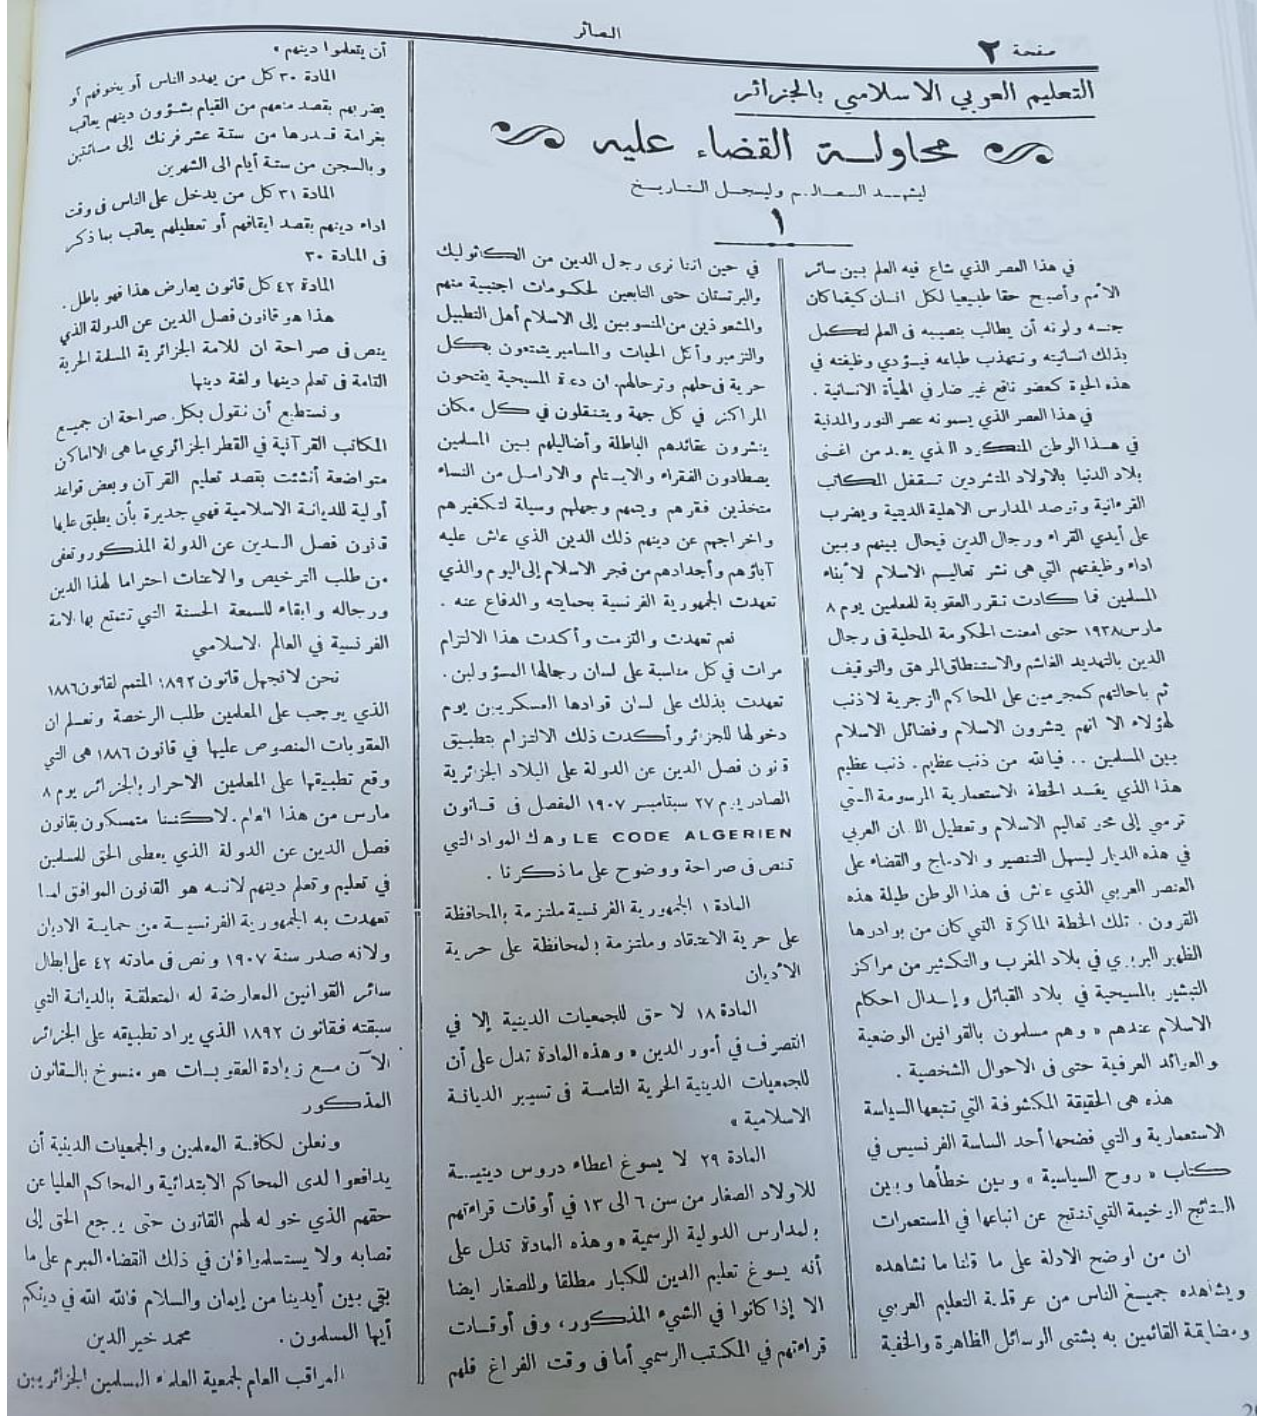 البصائر
صفحة ٢
التعليم العربي الاسلامي بالجزائر
محاولة القضاء عليه
ليشهد العالم وليسجل التاريخ
١
في هذا العصر الذي شاع فيه العلم بين سائر
الأمم وأصبح حقا طبيعيا لكل انسان كيفما كان
جنسه ولونه أن يطالب بنصيبه فى العلم لتكمل
بذلك انسانيته وتتهذب طباعه فيؤدي وظيفته في
هذه الحياة كعضو نافع غير ضار في الهيأة الانسانية .
في هذا العصر الذي يسمونه عصر النور والمدنية
في هذا الوطن المنكود الذي يعد من اغنى
بلاد الدنيا بالاولاد المتشردين تقفل المكاتب
القرءانية وترصد المدارس الاهلية الدينية ويضرب
على أيدي القراء ورجال الدين فيحال بينهم وبين
اداء وظيفتهم التي هى نشر تعاليم الاسلام لأبناء
المسلمين فما كادت تقرر العقوبة للمعلمين يوم ٨
مارس ١٩٣٨ حتى امعنت الحكومة المحلية فى رجال
الدين بالتهديد الغاشم والاستنطاق المرهق والتوقيف
ثم باحالتهم كمجرمين على المحاكم الزجرية لا ذنب
لهؤلاء الا انهم ينشرون الاسلام وفضائل الاسلام
بين المسلمين .. فيالله من ذنب عظيم . ذنب عظيم
هذا الذي يفسد الخطة الاستعمارية المرسومة التي
ترمي إلى محو تعاليم الاسلام وتعطيل اللسان العربي
في هذه الديار ليسهل التنصير والادماج والقضاء على
العنصر العربي الذي عاش فى هذا الوطن طيلة هذه
القرون . تلك الخطة الماكرة التي كان من بوادرها
الظهير البربري في بلاد المغرب والتكثير من مراكز
التبشير بالمسيحية في بلاد القبائل وإبدال احكام
الاسلام عندهم « وهم مسلمون بالقوانين الوضعية
والعوائد العرفية حتى فى الاحوال الشخصية .
هذه هى الحقيقة المكشوفة التي تتبعها السياسة
الاستعمارية والتي فضحها أحد الساسة الفرنسيس في
كتاب « روح السياسية » وبين خطأها وبين
النتائج الوخيمة التي تنتج عن اتباعها في المستعمرات
ان من اوضح الادلة على ما قلنا ما نشاهده
ويشاهده جميع الناس من عرقلة التعليم العربي
ومضايقة القائمين به بشتى الوسائل الظاهرة والخفية
في حين اننا نرى رجال الدين من الكاثوليك
والبرتستان حتى التابعين لحكومات اجنبية منهم
والمشعوذين من المنسوبين إلى الاسلام أهل التطبيل
والتزمير وأكل الحيات والمسامير يتمتعون بكل
حرية فى حلهم وترحالهم. ان دعاة المسيحية يفتحون
المراكز في كل جهة ويتنقلون في كل مكان
ينشرون عقائدهم الباطلة وأضاليلهم بين المسلمين
يصطادون الفقراء والايتام والارامل من النساء
متخذين فقرهم ويتمهم وجهلهم وسيلة لتكفيرهم
واخراجهم عن دينهم ذلك الدين الذي عاش عليه
آباؤهم وأجدادهم من فجر الاسلام إلى اليوم والذي
تعهدت الجمهورية الفرنسية بحمايته والدفاع عنه .
نعم تعهدت والتزمت وأكدت هذا الالتزام
مرات في كل مناسبة على لسان رجالها المسؤولين .
تعهدت بذلك على لسان قوادها العسكريين يوم
دخولها للجزائر وأكدت ذلك الالتزام بتطبيق
قانون فصل الدين عن الدولة على البلاد الجزائرية
الصادر يوم ٢٧ سبتامبر ١٩٠٧ المفصل فى قانون
LE CODE ALGERIEN وهاك المواد التي
تنص فى صراحة ووضوح على ما ذكرنا .
المادة ١ الجمهورية الفرنسية ملتزمة بالمحافظة
على حرية الاعتقاد وملتزمة بالمحافظة على حرية
الأديان
المادة ١٨ لا حق للجمعيات الدينية إلا في
التصرف في أمور الدين « وهذه المادة تدل على أن
للجمعيات الدينية الحرية التامة فى تسيير الديانة
الاسلامية »
المادة ٢٩ لا يسوغ اعطاء دروس دينية
للاولاد الصغار من سن ٦ الى ١٣ في أوقات قراءتهم
بالمدارس الدولية الرسمية « وهذه المادة تدل على
أنه يسوغ تعليم الدين للكبار مطلقا وللصغار ايضا
الا إذا كانوا في الشيء المذكور، وفى أوقات
قراءتهم في المكتب الرسمي أما فى وقت الفراغ فلهم
أن يتعلموا دينهم »
المادة ٣٠ كل من يهدد الناس أو يخوفهم أو
يضربهم بقصد منعهم من القيام بشؤون دينهم يعاقب
بغرامة قدرها من ستة عشر فرنك إلى مائتين
وبالسجن من ستة أيام الى الشهرين
المادة ٣١ كل من يدخل على الناس فى وقت
اداء دينهم بقصد ايقافهم أو تعطيلهم يعاقب بما ذكر
فى المادة ٣٠
المادة ٤٢ كل قانون يعارض هذا فهو باطل .
هذا هو قانون فصل الدين عن الدولة الذي
ينص فى صراحة ان للامة الجزائرية المسلمة الحرية
التامة فى تعلم دينها ولغة دينها
ونستطيع أن نقول بكل صراحة ان جميع
المكاتب القرآنية في القطر الجزائري ما هى الا اماكن
متواضعة أنشئت بقصد تعليم القرآن وبعض قواعد
أولية للديانة الاسلامية فهي جديرة بأن يطبق عليها
قانون فصل الدين عن الدولة المذكور وتعفى
من طلب الترخيص والاعنات احتراما لهذا الدين
ورجاله وابقاء للسمعة الحسنة التي تتمتع بها الامة
الفرنسية في العالم الاسلامي
نحن لا نجهل قانون ١٨٩٢ المتمم لقانون ١٨٨٦
الذي يوجب على المعلمين طلب الرخصة ونعلم ان
العقوبات المنصوص عليها في قانون ١٨٨٦ هى التي
وقع تطبيقها على المعلمين الاحرار بالجزائر يوم ٨
مارس من هذا العام . لاكننا متمسكون بقانون
فصل الدين عن الدولة الذي يعطى الحق للمسلمين
في تعليم وتعلم دينهم لانه هو القانون الموافق لما
تعهدت به الجمهورية الفرنسية من حماية الاديان
ولانه صدر سنة ١٩٠٧ ونص فى مادته ٤٢ على ابطال
سائر القوانين المعارضة له المتعلقة بالديانة التي
سبقته فقانون ١٨٩٢ الذي يراد تطبيقه على الجزائر
الآن مع زيادة العقوبات هو منسوخ بالقانون
المذكور
ونعلن لكافة المعلمين والجمعيات الدينية أن
يدافعوا لدى المحاكم الابتدائية والمحاكم العليا عن
حقهم الذي خوله لهم القانون حتى يرجع الحق إلى
نصابه ولا يستسلموا فان في ذلك القضاء المبرم على ما
بقي بين أيدينا من إيمان والسلام فالله الله في دينكم
أيها المسلمون . محمد خير الدين
المراقب العام لجمعية العلماء المسلمين الجزائريين